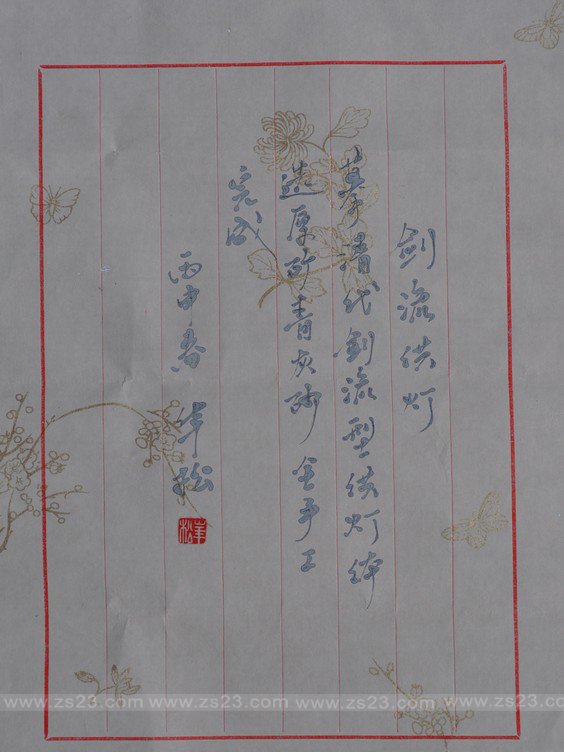 剑流供灯
摹清代剑流型供灯体
造厚砂青灰陶 全手工
完成
丙申春 羊松
羊松
www.zs23.com www.zs23.com www.zs23.com www.zs23.com